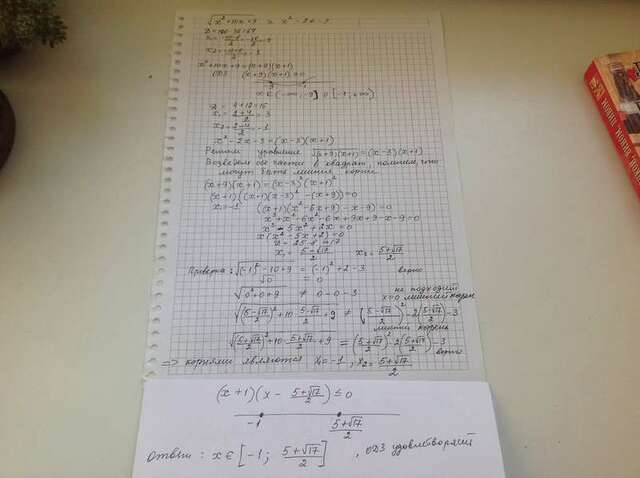 √(x²+10x+9) ≥ x² - 2x - 3
D = 100-36=64
x₂ = = -1
x²+10x+9 = (x+9)(x+1)
ОДЗ (x+9)(x+1)≥0
x ∈ (-∞; -9] ∪ [-1; +∞)
D = 4+12=16
x₁ = (2+4)/2 = 3
x₂ = (2-4)/2 = -1
x²-2x-3 = (x-3)(x+1)
Решаем уравнение √((x+9)(x+1)) = (x-3)(x+1)
Возведём обе части в квадрат, помним, что
могут быть лишние корни
(x+9)(x+1) = (x-3)²(x+1)²
(x+1)((x+1)(x-3)² - (x+9)) = 0
x₁=-1 ((x+1)(x²-6x+9)-x-9)=0
x³+x²-6x²-6x+9x+9-x-9=0
x³-5x²+2x=0
x(x²-5x+2)=0
D = 25-8=17
x₁ = (5-√17)/2 x₂ = (5+√17)/2
Проверка: √((-1)²-10+9) = (-1)²+2-3 верно
√0 = 0
не подходит
√(0²+0+9) ≠ 0-0-3 x=0 лишний корень
√(((5-√17)/2)²+10·(5-√17)/2+9) ≠ ((5-√17)/2)²-2((5-√17)/2)-3
лишний корень
√(((5+√17)/2)²+10·(5+√17)/2+9) = ((5+√17)/2)²-2((5+√17)/2)-3
верно
=> корнями являются x₁=-1, x₂=(5+√17)/2
(x+1)(x - (5+√17)/2) ≤ 0
-1 (5+√17)/2
Ответ: x ∈ [-1; (5+√17)/2], ОДЗ удовлетворяет